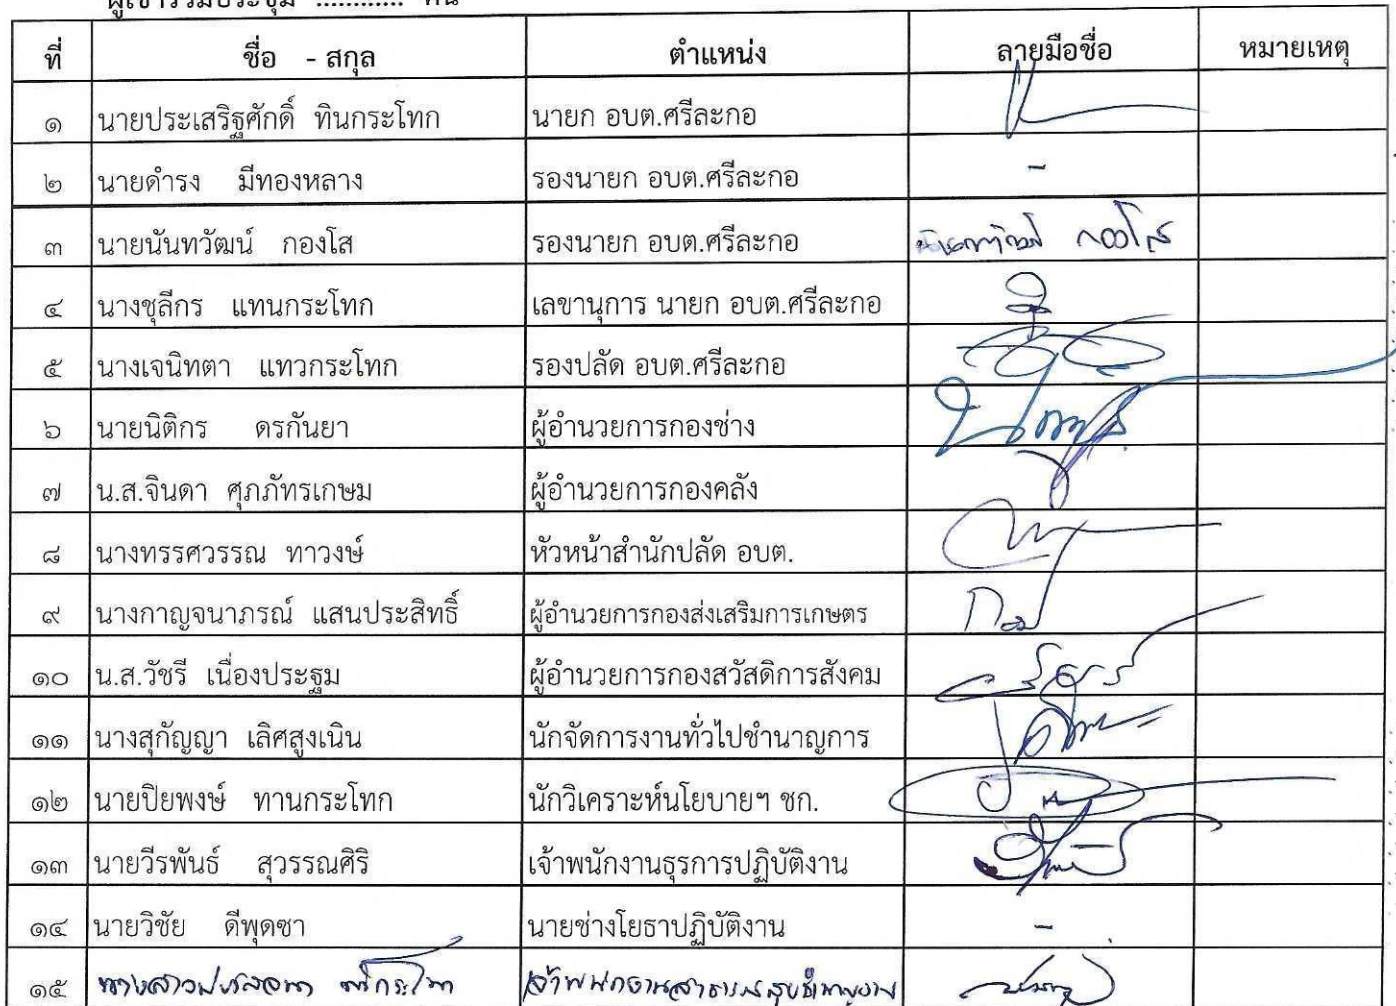 ผู้เข้าร่วมประชุม ............ คน
ที่ ชื่อ - สกุล ตำแหน่ง ลายมือชื่อ หมายเหตุ
๑ นายประเสริฐศักดิ์ ทินกระโทก นายก อบต.ศรีละกอ
๒ นายดำรง มีทองหลาง รองนายก อบต.ศรีละกอ -
๓ นายนันทวัฒน์ กองโส รองนายก อบต.ศรีละกอ นันทวัฒน์ กองโส
๔ นางชุลีกร แทนกระโทก เลขานุการ นายก อบต.ศรีละกอ
๕ นางเจนิทตา แทวกระโทก รองปลัด อบต.ศรีละกอ
๖ นายนิติกร ดรกันยา ผู้อำนวยการกองช่าง
๗ น.ส.จินดา ศุภภัทรเกษม ผู้อำนวยการกองคลัง
๘ นางทรรศวรรณ ทาวงษ์ หัวหน้าสำนักปลัด อบต.
๙ นางกาญจนาภรณ์ แสนประสิทธิ์ ผู้อำนวยการกองส่งเสริมการเกษตร
๑๐ น.ส.วัชรี เนื่องประฐม ผู้อำนวยการกองสวัสดิการสังคม
๑๑ นางสุกัญญา เลิศสูงเนิน นักจัดการงานทั่วไปชำนาญการ
๑๒ นายปิยพงษ์ ทานกระโทก นักวิเคราะห์นโยบายฯ ชก.
๑๓ นายวีรพันธ์ สุวรรณศิริ เจ้าพนักงานธุรการปฏิบัติงาน
๑๔ นายวิชัย ดีพุดซา นายช่างโยธาปฏิบัติงาน -
๑๕ นางสาว เจ้าพนักงานสาธารณสุขชำนาญงาน